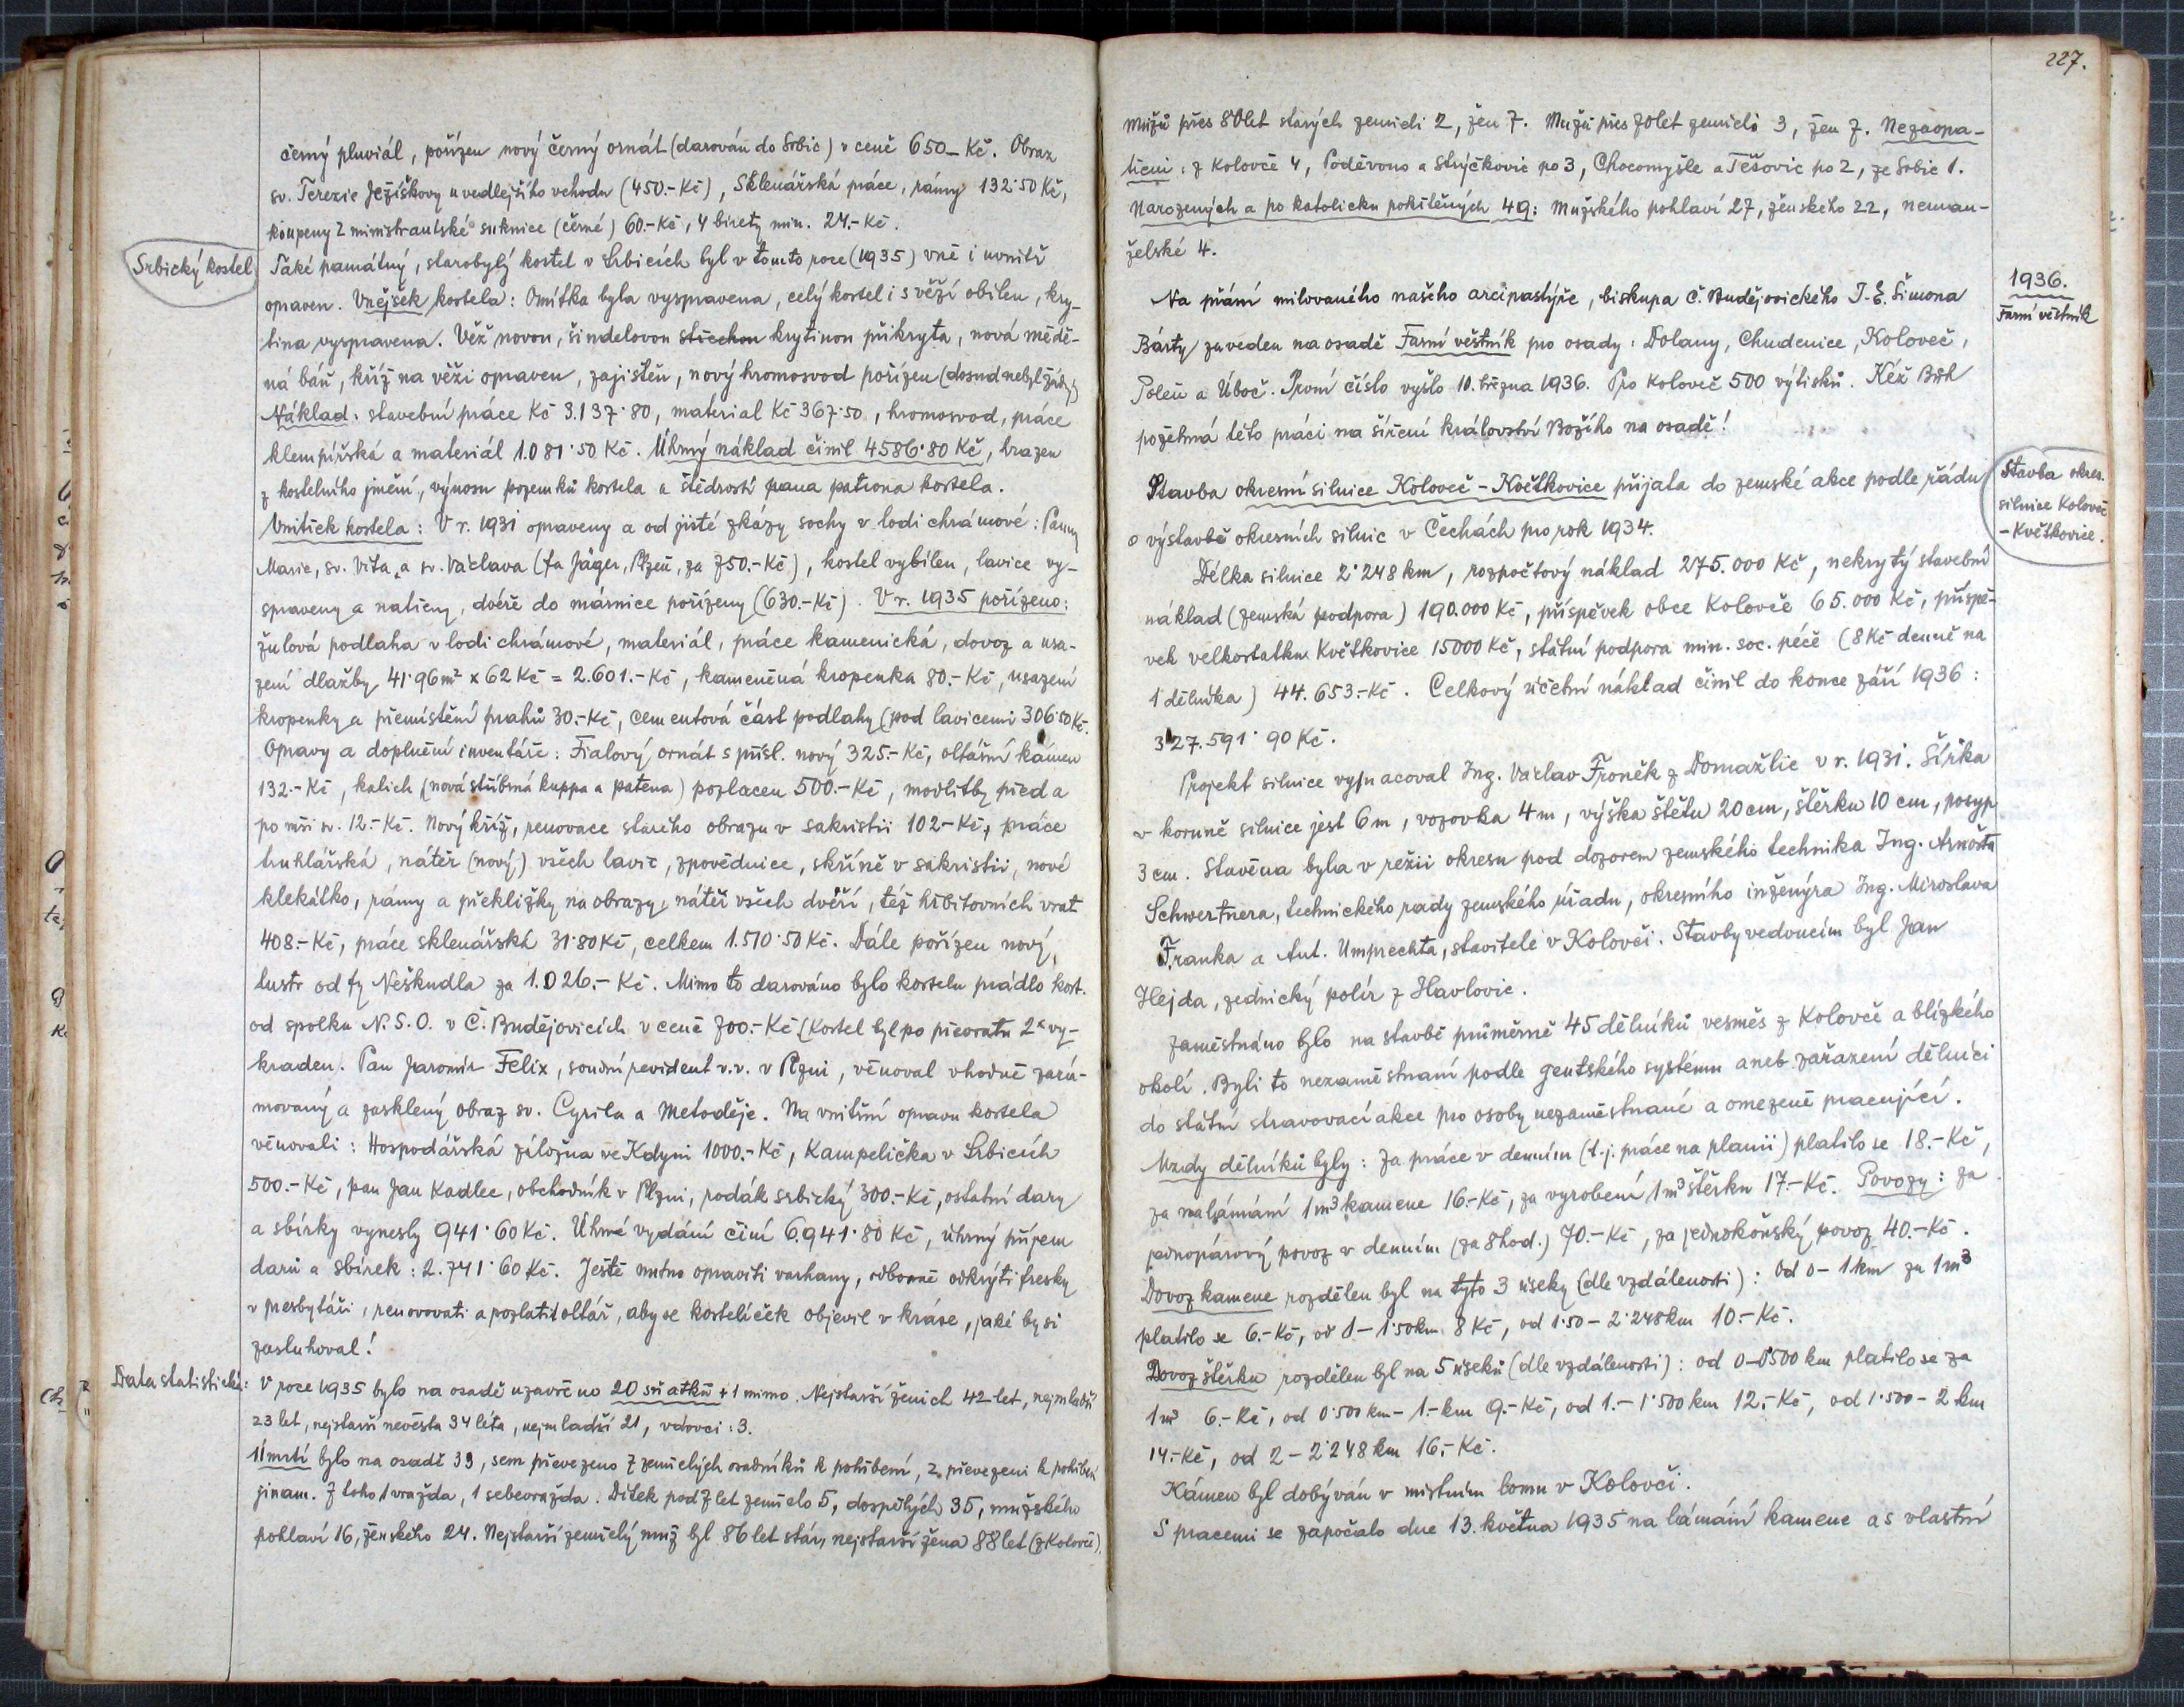 černý pluviál, pořízen nový černý ornát (darován do Srbic) v ceně 650_ Kč. Obraz
sv. Terezie Ježíškovy u vedlejšího vchodu (450.- Kč), Sklenářská práce, rámy 132·50 Kč,
koupeny 2 ministrantské suknice (černé) 60.- Kč, 4 birety min. 24.- Kč.
Srbický kostel
Také památný, starobylý kostel v Srbicích byl v tomto roce (1935) vně i uvnitř
opraven. Vnějšek kostela: Omítka byla vyspravena, celý kostel i s věží obílen, kry-
tina vyspravena. Věž novou, šindelovou střechou krytinou přikryta, nová mědě-
ná báň, kříž na věži opraven, zajištěn, nový hromosvod pořízen (dosud nebyl žádný)
Náklad: stavební práce Kč 3.137·80, material Kč 367·50., hromosvod, práce
klempířská a materiál 1.081·50 Kč. Úhrný náklad činil 4586·80 Kč, hrazen
z kostelního jmění, výnosu pozemků kostela a štědrostí pana patrona kostela.
Vnitřek kostela: V r. 1931 opraveny a od jisté zkázy sochy v lodi chrámové: Panny
Marie, sv. Víta, a sv. Václava (fa Jäger, Plzeň, za 750.- Kč), kostel vybílen, lavice vy-
spraveny a natřeny, dvéře do márnice pořízeny (630.- Kč). V r. 1935 pořízeno:
žulová podlaha v lodi chrámové, materiál, práce kamenická, dovoz a usa-
zení dlažby 41·96 m² x 62 Kč = 2.601.- Kč, kamenčná kropenka 80.- Kč, usazení
kropenky a přemístění prahů 30.- Kč, cementová část podlahy (pod lavicemi 306·50 Kč.
Opravy a doplnění inventáře: Fialový ornát s přísl. nový 325.- Kč, oltářní kámen
132.- Kč, kalich (nová stříbrná kuppa a patena) pozlacen 500.- Kč, modlitby před a
po mši sv. 12.- Kč. Nový kříž, renovace starého obrazu v sakristii 102- Kč, práce
truhlářská, nátěr (nový) všech lavic, zpovědnice, skříně v sakristii, nové
klekátko, rámy a překližky na obrazy, nátěr všech dveří, též hřbitovních vrat
408.- Kč, práce sklenářská 31·80 Kč, celkem 1.510·50 Kč. Dále pořízen nový,
lustr od fy Neškudla za 1.026.- Kč. Mimo to darováno bylo kostelu prádlo kost.
od spolku N. S. O. v Č. Budějovicích v ceně 700.- Kč (Kostel byl po převratu 2x vy-
kraden. Pan Jaromír Felix, soudní revident v.v. v Plzni, věnoval vhodně zará-
movaný a zasklený obraz sv. Cyrila a Metoděje. Na vnitřní opravu kostela
věnovali: Hospodářská záložna ve Kdyni 1000.- Kč, Kampelička v Srbicích
500.- Kč, pan Jan Kadlec, obchodník v Plzni, rodák srbický 300.- Kč, ostatní dary
a sbírky vynesly 941·60 Kč. Úhrné vydání činí 6.941·80 Kč, úhrný příjem
darů a sbírek: 2.741·60 Kč. Ještě nutno opraviti varhany, odborně odkrýti fresky
v presbytáři, renovovati a pozlatit oltář, aby se kostelíček objevil v kráse, jaké by si
zasluhoval!
Data statistická:
V roce 1935 bylo na osadě uzavřeno 20 sňatků + 1 mimo. Nejstarší ženich 42 let, nejmladší
23 let, nejstarší nevěsta 34 léta, nejmladší 21, vdovci: 3.
Úmrtí bylo na osadě 39, sem převezeno 7 zemřelých osadníků k pohřbení, 2 převezeni k pohřbení
jinam. Z toho 1 vražda, 1 sebevražda. Dítek pod 7 let zemřelo 5, dospělých 35, mužského
pohlaví 16, ženského 24. Nejstarší zemřelý muž byl 86 let stár, nejstarší žena 88 let (z Kolovče).
227.
Mužů přes 80 let starých zemřeli 2, žen 7. Mužů přes 70 let zemřeli 3, žen 7. Nezaopa-
třeni: z Kolovče 4, Poděvous a Strýčkovic po 3, Chocomyšle a Těšovic po 2, ze Srbic 1.
Narozených a po katolicku pokřtěných 49: Mužského pohlaví 27, ženského 22, neman-
želské 4.
1936.
Farní věstník
Na přání milovaného našeho arcipastýře, biskupa Č. Budějovického J. E. Šimona
Bárty zaveden na osadě Farní věštník pro osady: Dolany, Chudenice, Koloveč,
Poleň a Úboč. První číslo vyšlo 10. března 1936. Pro Koloveč 500 výtisků. Kéž Bůh
požehná této práci na šíření království Božího na osadě!
Stavba okres.
silnice Koloveč
- Květkovice.
Stavba okresní silnice Koloveč - Květkovice přijata do zemské akce podle řádu
o výstavbě okresních silnic v Čechách pro rok 1934.
Délka silnice 2·248 km, rozpočtový náklad 275.000 Kč, nekrytý stavební
náklad (zemská podpora) 190.000 Kč, příspěvek obce Kolovče 65.000 Kč, příspě-
vek velkostatku Květkovice 15000 Kč, státní podpora min. soc. péče (8 Kč denně na
1 dělníka) 44.653.- Kč. Celkový účetní náklad činil do konce září 1936:
327.591·90 Kč.
Projekt silnice vypracoval Ing. Václav Froněk z Domažlic v r. 1931. Šířka
v koruně silnice jest 6 m, vozovka 4 m, výška štětu 20 cm, štěrku 10 cm, posyp
3 cm. Stavěna byla v režii okresu pod dozorem zemského technika Ing. Arnošta
Schwertnera, technického rady zemského úřadu, okresního inženýra Ing. Miroslava
Franka a Ant. Umprechta, stavitele v Kolovči. Stavbyvedoucím byl Jan
Hejda, zednický polír z Havlovic.
Zaměstnáno bylo na stavbě průměrně 45 dělníků vesměs z Kolovče a blízkého
okolí. Byli to nezaměstnaní podle gentského systému aneb zařazení dělníci
do státní stravovací akce pro osoby nezaměstnané a omezeně pracující.
Mzdy dělníků byly: Za práce v denním (t.j. práce na planii) platilo se 18.- Kč,
za nalámání 1 m³ kamene 16.- Kč, za vyrobení 1 m³ štěrku 17.- Kč. Povozy: za
jednopárový povoz v denním (za 8 hod.) 70.- Kč, za jednokoňský povoz 40.- Kč.
Dovoz kamene rozdělen byl na tyto 3 úseky (dle vzdálenosti): Od 0 - 1 km za 1 m³
platilo se 6.- Kč, od 1 - 1·50 km 8 Kč, od 1·50 - 2·248 km 10.- Kč.
Dovoz štěrku rozdělen byl na 5 úseků (dle vzdálenosti): od 0-0·500 km platilo se za
1 m³ 6.- Kč, od 0·500 km - 1.- km 9.- Kč, od 1.- 1·500 km 12.- Kč, od 1·500 - 2 km
14.- Kč, od 2 - 2·248 km 16.- Kč.
Kámen byl dobýván v místním lomu v Kolovči.
S pracemi se započalo dne 13. května 1935 na lámání kamene a s vlastní